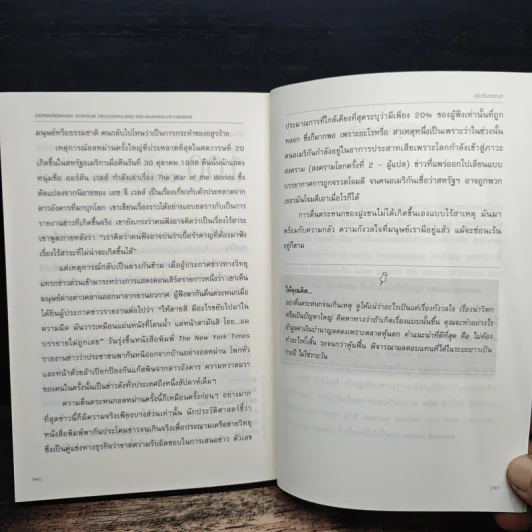 EXTRAORDINARY POPULAR DELUSIONS AND THE MADNESS OF CROWDS
มนุษย์หรือธรรมชาติ คนกลับไปโทษว่าเป็นการกระทำของอสูรร้าย
เหตุการณ์อลหม่านครั้งใหญ่ที่ประหลาดที่สุดในศตวรรษที่ 20
เกิดขึ้นในสหรัฐอเมริกาเมื่อคืนวันที่ 30 ตุลาคม 1938 คืนนั้นนักแสดง
หนุ่มชื่อ ออร์สัน เวลส์ กำลังเล่าเรื่อง The War of the Worlds ซึ่ง
ดัดแปลงจากนิยายของ เอช จี เวลส์ เป็นเรื่องเกี่ยวกับตัวประหลาดจาก
ดาวอังคารที่มาบุกโลก เขาเขียนเรื่องราวได้อย่างแยบยลราวกับเป็นการ
รายงานข่าวที่เกิดขึ้นจริง เขายังเกรงว่าคนฟังอาจคิดว่าเป็นเรื่องไร้สาระ
เขาพูดภายหลังว่า "เราคิดว่าคนฟังอาจบ่นว่าเบื่อรำคาญที่ต้องมาฟัง
เรื่องไร้สาระที่ไม่น่าจะเกิดขึ้นได้"
แต่เหตุการณ์กลับเป็นตรงกันข้าม เมื่อผู้ประกาศข่าวทางวิทยุ
แทรกข่าวด่วนเข้ามาระหว่างการแสดงคอนเสิร์ตรายการหนึ่งว่า เขาเห็น
มนุษย์ต่างดาวคลานออกมาจากยานอวกาศ ผู้ฟังพากันตื่นตระหนกเมื่อ
ได้ยินผู้ประกาศข่าวรายงานต่อไปว่า "ให้ตายสิ มีอะไรขยับไปมาใน
ความมืด มันวาวเหมือนแผ่นหนังที่โดนน้ำ แต่หน้าตามันสิ โอย...ผม
บรรยายไม่ถูกเลย" วันรุ่งขึ้นหนังสือพิมพ์ The New York Times
รายงานข่าวว่าประชาชนพากันหนีออกจากบ้านอย่างอลหม่าน โพกหัว
และหน้าด้วยผ้าเปียกป้องกันแก๊สพิษจากดาวอังคาร ความหวาดผวา
ของคนในครั้งนั้นเป็นข่าวดังทั่วประเทศถึงหนึ่งสัปดาห์เต็มๆ
ความตื่นตระหนกอลหม่านครั้งนี้ก็เหมือนครั้งก่อนๆ อย่างมาก
ที่สุดข่าวนี้ก็มีความจริงเพียงบางส่วนเท่านั้น นักประวัติศาสตร์ชี้ว่า
หนังสือพิมพ์พากันประโคมข่าวจนเกินจริงเพื่อประณามเครือข่ายวิทยุ
ซึ่งเป็นคู่แข่งทางธุรกิจว่าขาดความรับผิดชอบในการเสนอข่าว ตัวเลข
344 |
อย่าตื่นตระหนก
ประมาณการที่ใกล้เคียงที่สุดระบุว่ามีเพียง 20% ของผู้ฟังเท่านั้นที่ถูก
หลอก ซึ่งก็มากพอ เพราะอะไรหรือ สาเหตุหนึ่งเป็นเพราะว่าในช่วงนั้น
คนอเมริกันกำลังอยู่ในอาการประสาทเสียเพราะโลกกำลังเข้าสู่ภาวะ
สงคราม (สงครามโลกครั้งที่ 2 - ผู้แปล) ข่าวที่แพร่ออกไปเลียนแบบ
บรรยากาศการถูกจรวดโจมตี จนคนอเมริกันเชื่อว่าสหรัฐฯ อาจถูกพวก
เยอรมันโจมตีเอาเมื่อไรก็ได้
การตื่นตระหนกของฝูงชนไม่ได้เกิดขึ้นเองแบบไร้สาเหตุ มันมา
พร้อมกับความกลัว ความกังวลใจที่มนุษย์เรามีอยู่แล้ว แม้จะซ่อนเร้น
อยู่ก็ตาม
ให้คุณคิด...
อย่าตื่นตระหนกจนเกินเหตุ ดูให้แน่ว่าอะไรเป็นแค่เรื่องกังวลใจ เรื่องน่าวิตก
หรือเป็นปัญหาใหญ่ คิดหาทางว่าถ้าเกิดเรื่องแบบนั้นขึ้น คุณจะทำอย่างไร
ถ้ามูลค่าเงินบำนาญลดลงเพราะตลาดหุ้นตก คำแนะนำที่ดีที่สุด คือ ไม่ต้อง
ทำอะไรทั้งสิ้น รอจนกว่าหุ้นฟื้น พิจารณาผลตอบแทนที่ได้ในระยะยาวเป็น
รายปี ไม่ใช่รายวัน
| 345